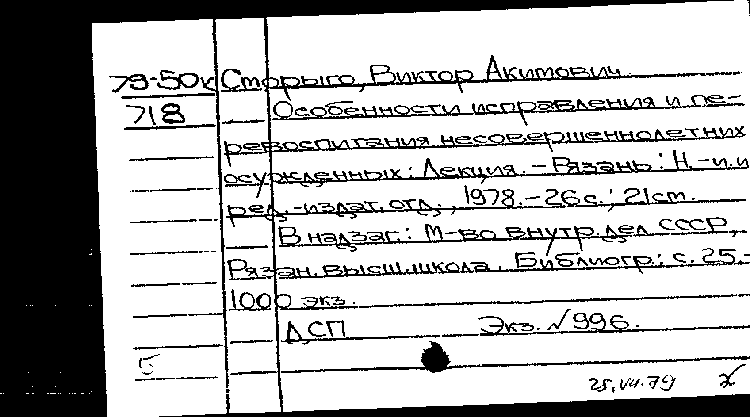 79-50к Старыго, Виктор Акимович
718 Особенности исправления и пе-
ревоспитания несовершеннолетних
осужденных: Лекция. – Рязань: Н.-и. и
ред.-издат. отд., 1978. – 26 с.; 21 см.
В надзаг.: М-во внутр. дел СССР,
Рязан. высш. школа. Библиогр.: с. 25.–
1000 экз.
ДСП Экз. №996.
Б
25.VII.79